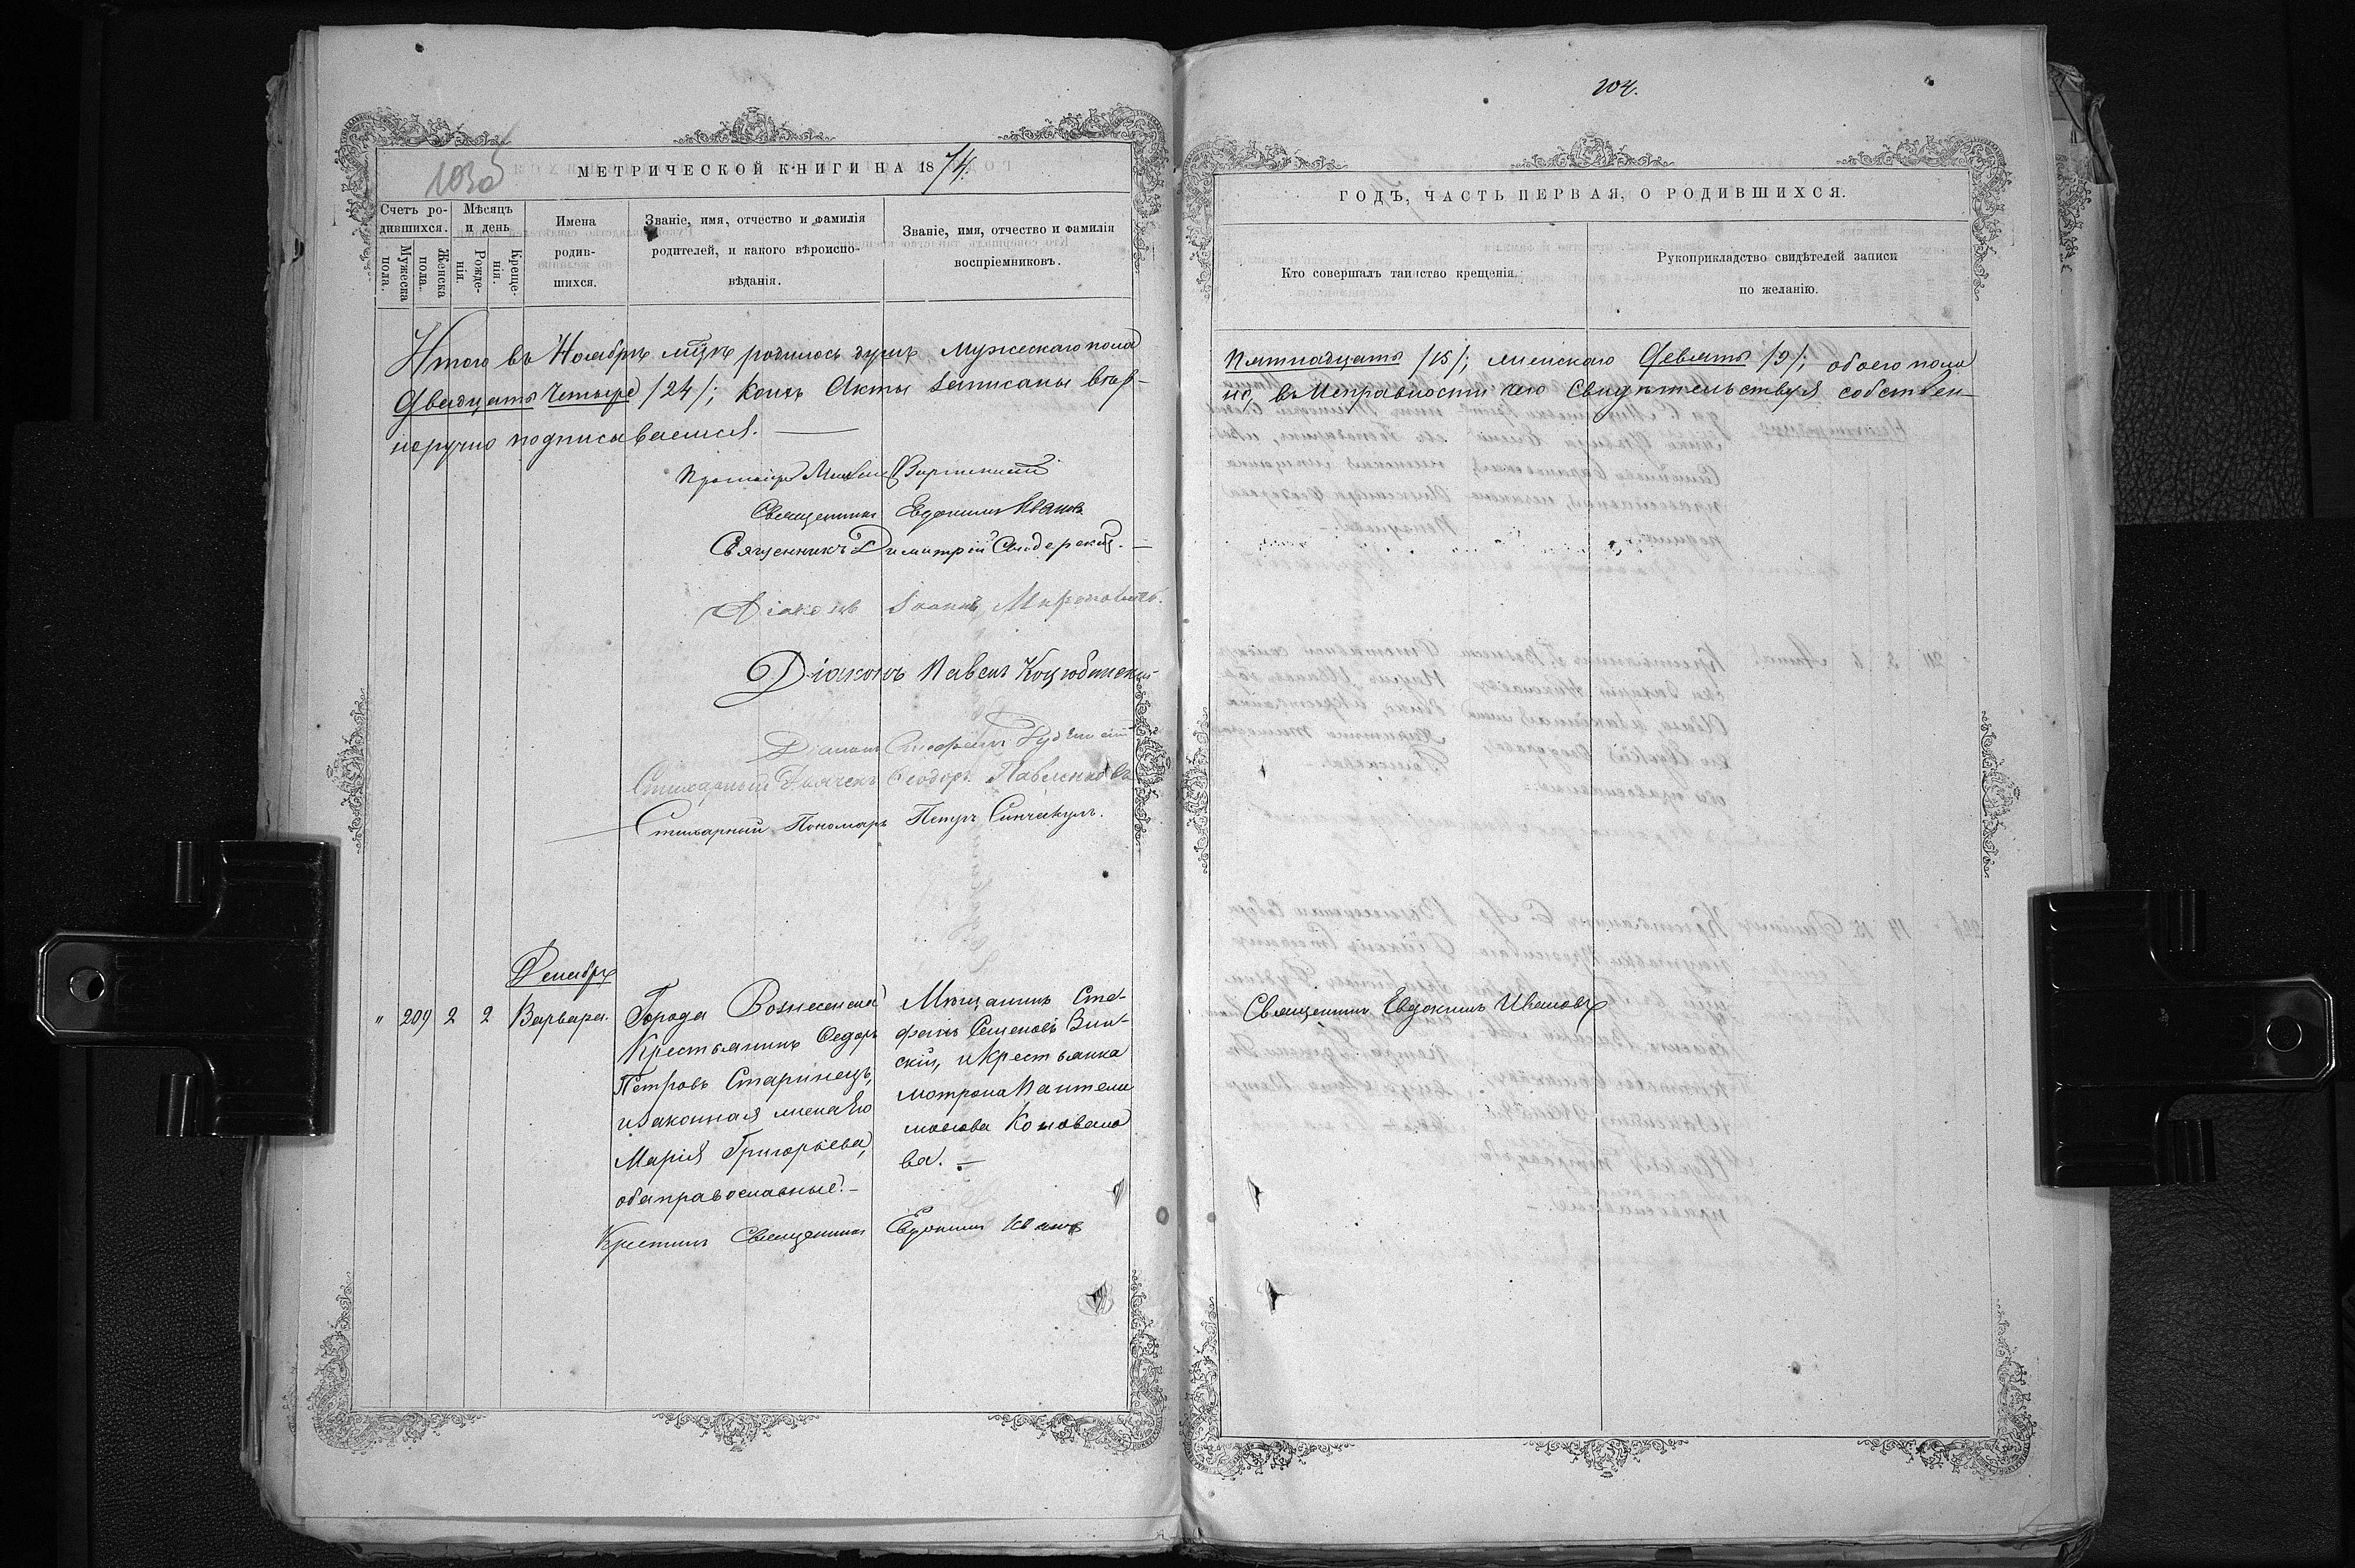 103об
МЕТРИЧЕСКОЙ КНИГИ НА 1874.
Счетъ родившихся.
Мужеска пола.
Женска пола.
Мѣсяцъ и день
Рожденія.
Крещенія.
Имена родившихся.
Званіе, имя, отчество и фамилія родителей, и какого вѣроисповѣданія.
Званіе, имя, отчество и фамилія воспріемниковъ.
Итого въ Ноябрѣ мцѣ родилось душъ Мужескаго пола
Двадцать Четыре /24/; коихъ Акты записаны вѣр-
неручно подписываемся. —
Протоіерей Михаилъ
Священникъ Евдокимъ Ивановъ
Священникъ Димитрій Сидерскій. —
Діаконъ Іоаннъ Мироновичъ.
Діаконъ Павелъ Коцюбинскій
Діаконъ
Стихарный Дьячекъ Ѳеодоръ Павленковъ
Стихарный Пономарь Петръ Синчакулъ.
Декабрь
" 209 2 2 Варвара.
Города Вознесенска
Крестьянинъ Ѳедоръ
Петровъ Старинецъ,
и законная жена его
Марія Григорьева,
оба православные. —
Мѣщанинъ Сте-
фанъ Семеновъ Зин-
скій, и крестьянка
Мотрона Пантели
монова Коновало
ва. —
Крестилъ Священникъ Евдокимъ Ивановъ
104.
ГОДЪ, ЧАСТЬ ПЕРВАЯ, О РОДИВШИХСЯ.
Кто совершалъ таинство крещенія.
Рукоприкладство свидѣтелей записи
по желанію.
Пятнадцать /15/; женскаго Девять /9/; обоего пола
но, въ Исправности чего Свидѣтельствуя собствен-
Священникъ Евдокимъ Ивановъ